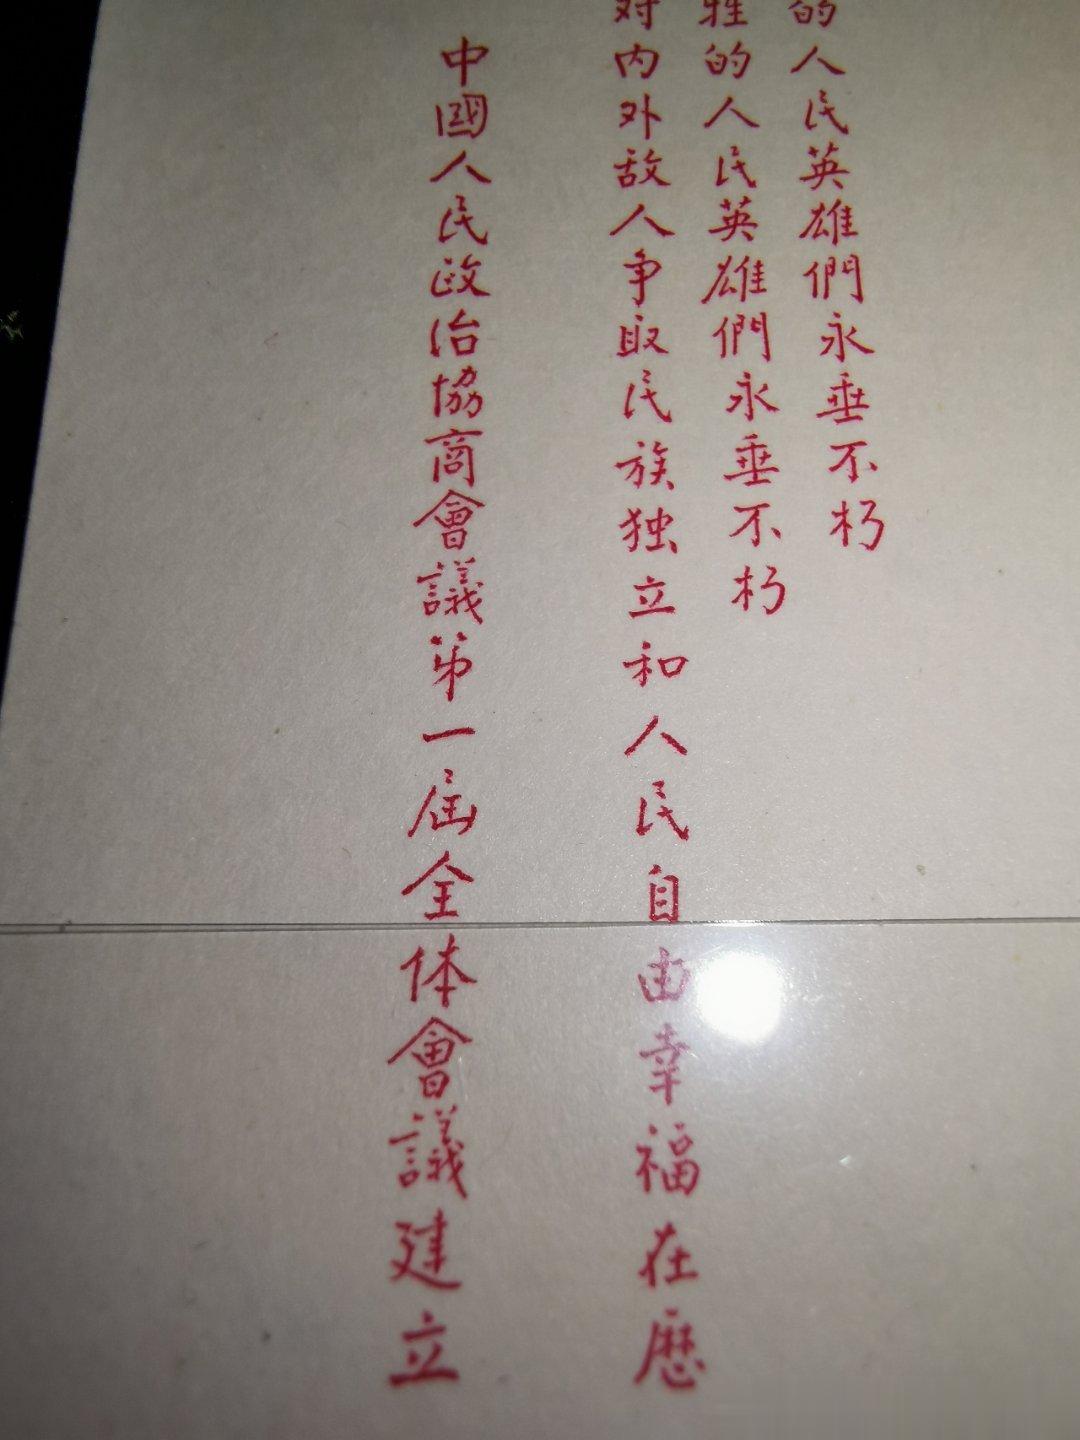 的人民英雄們永垂不朽
牲的人民英雄們永垂不朽
对内外敌人争取民族独立和人民自由幸福在歷
中國人民政治協商會議第一屆全体會議建立